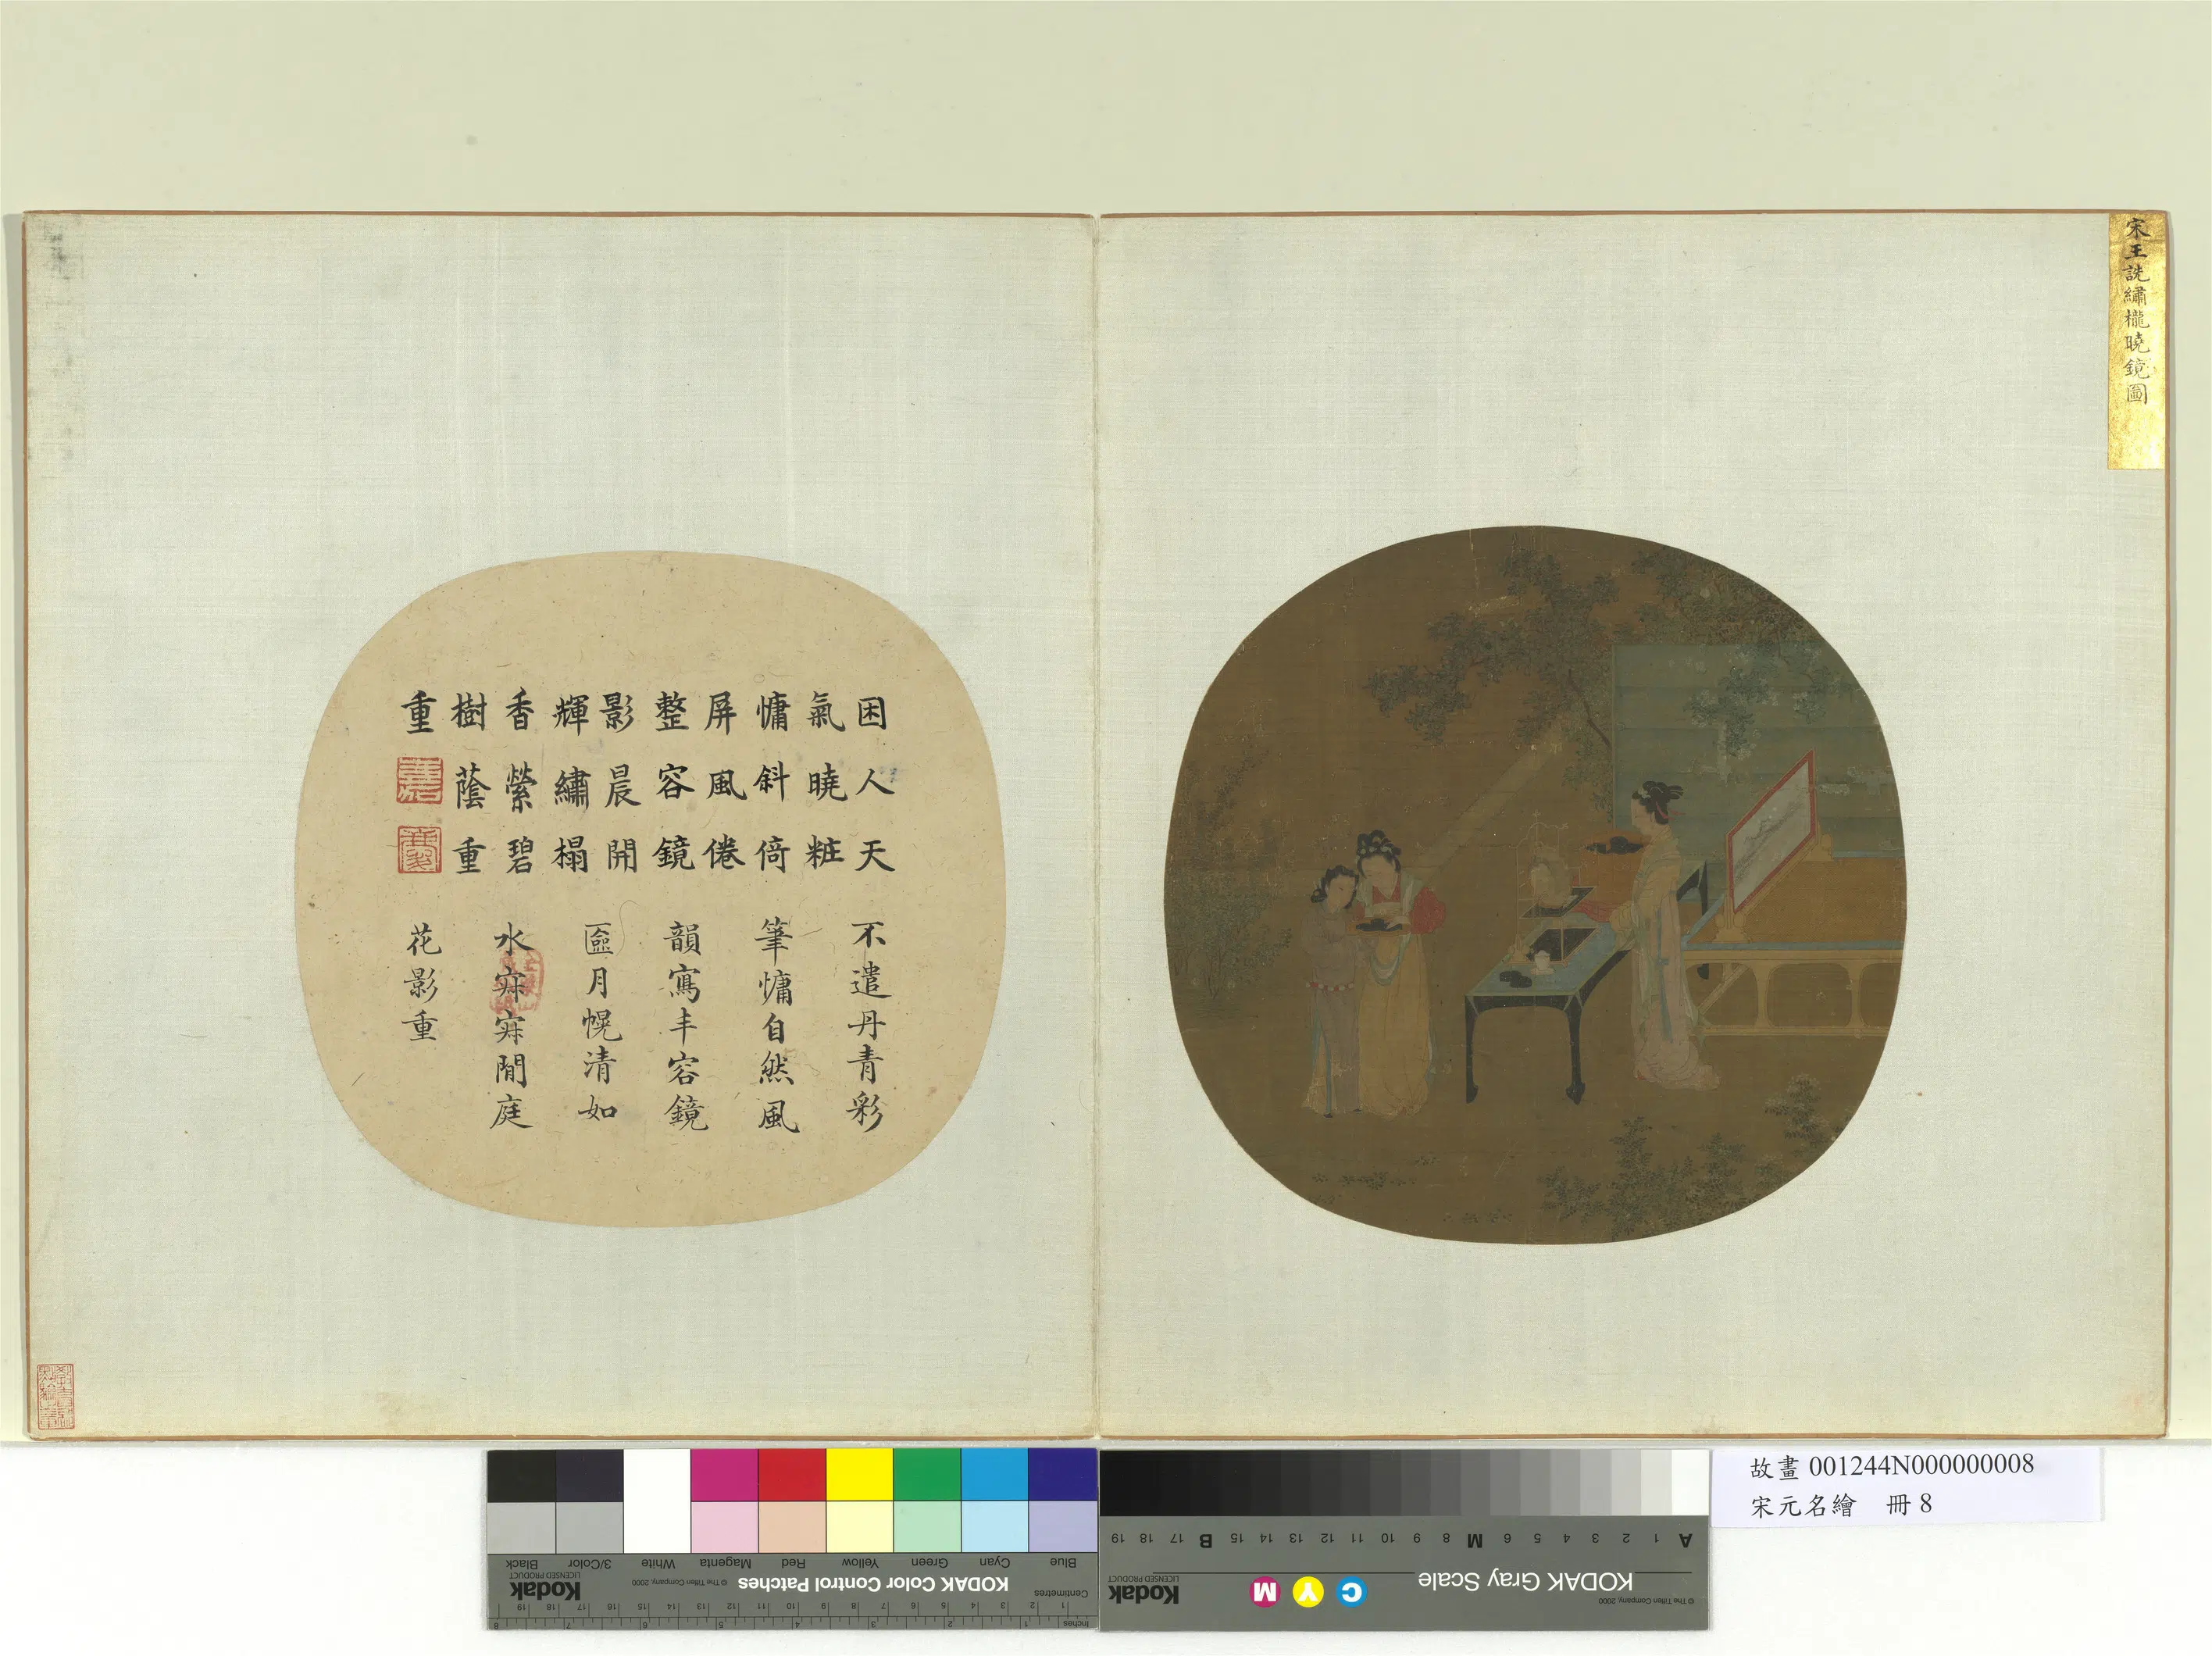 宋王詵繡櫳曉鏡圖
困人天
氣曉粧
慵斜倚
屏風倦
整容鏡
影晨開
輝繡榻
香縈碧
樹蔭重
重
不遣丹青彩
筆慵自然風
韻寫丰容鏡
匳月幌清如
水寂寂閒庭
花影重
故畫 001244N000000008
宋元名繪 冊 8
Blue
Cyan
Green
Yellow
Red
Magenta
White
3/Color
Black
Centimetres
KODAK Color Control Patches
© The Tiffen Company, 2000
Kodak
LICENSED PRODUCT
Inches
A 1 2 3 4 5 6 M 8 9 10 11 12 13 14 15 B 17 18 19
KODAK Gray Scale
C Y M
Kodak
LICENSED PRODUCT
© The Tiffen Company, 2000